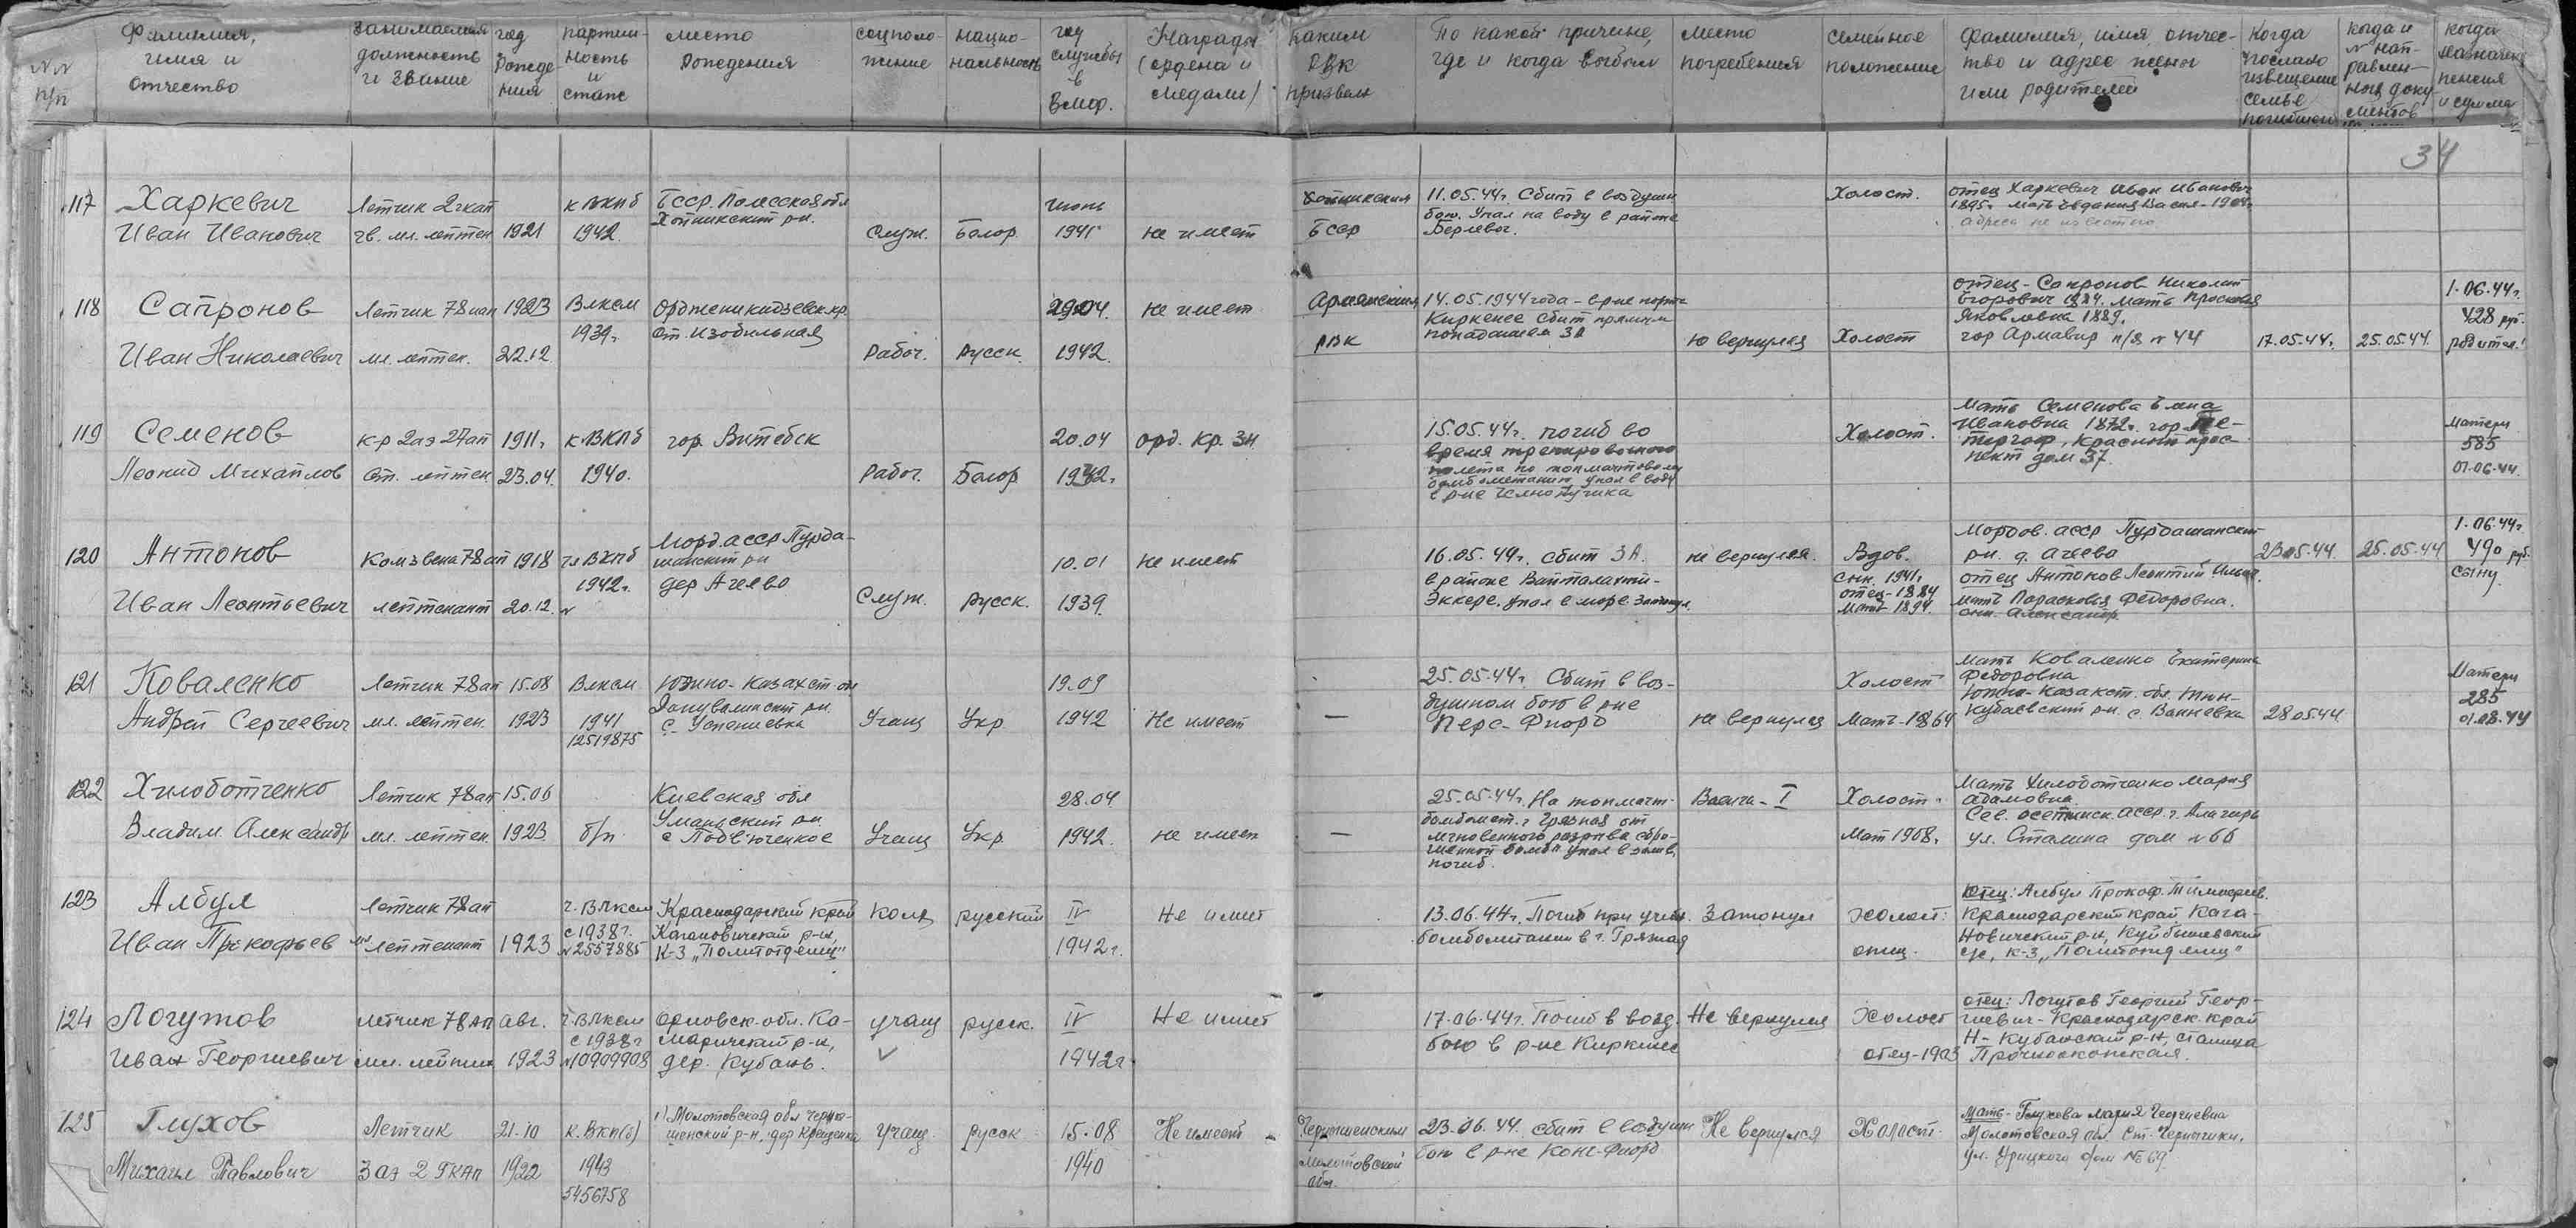 NN п/п
Фамилия, имя и отчество
занимаемая должность и звание
год рождения
партийность и стаж
место рождения
соцположение
национальность
год службы в ВМФ.
Награды (ордена и медали)
каким РВК призван
По какой причине, где и когда выбыл
место погребения
семейное положение
Фамилия, имя, отчество и адрес жены или родителей
Когда послано извещение семье погибшего
когда и № направленных документов
когда назначена пенсия и сумма
34
117
Харкевич
Иван Иванович
Летчик 2гкап
гв. мл. лейтен
1921
к ВКПб
1942.
БССР. Полесская обл
Хойникский р-н.
Служ.
Белор.
июнь
1941
не имеет
Хойникским
БССР
11.05.44г. Сбит в воздушн
бою. Упал на воду в районе
Берлевог.
Холост.
отец Харкевич Иван Иванович
1895г. мать
адрес не известно
118
Сапронов
Иван Николаевич
Летчик 78иап
мл. лейтен.
1923
22.12.
Влксм
1939г.
Орджоникидзевск.кр.
ст. Изобильная
Рабоч.
Русск.
29.04.
1942.
не имеет
Армавирским
РВК
14.05.1944 года - в р-не порта
Киркенес сбит прямым
попаданием ЗА
не вернулся
Холост
отец - Сапронов Николай
Егорович мать
Яковлевна 1889.
гор Армавир п/я № 44
17.05.44г.
25.05.44.
1.06.44г.
428 руб.
родител.
119
Семенов
Леонид Михайлов
к-р 2аэ 27ап
Ст. лейтен.
1911г.
23.04.
к ВКПб
1940.
гор. Витебск
Рабоч.
Белор
20.04
1932г.
орд. Кр. Зн
15.05.44г. погиб во
время тренировочного
полета по топмачтовому
бомбометанию упал в воду
в р-не
Холост.
Мать Семенова
Ивановна 1872г. гор. Пе-
тергоф, Красный прос-
пект дом 37.
матери
585
01.06.44.
120
Антонов
Иван Леонтьевич
Ком. звена 78ап
лейтенант
1918
20.12.
чл ВКПб
1942г.
№
Морд. АССР Пурда-
шанский р-н
дер Агеево
Служ.
Русск.
10.01
1939.
Не имеет
16.05.44г. сбит ЗА.
в районе
Эккере. упал в море. Затонул.
не вернулся.
Вдов.
сын. 1941г.
отец - 1884
мать 1894.
Мордов. АССР Пурдашанский
р-н. д. Агеево
отец Антонов Леонтий
мать Парасковья Федоровна.
сын. Александр.
23.05.44.
25.05.44
1.06.44г.
490 руб.
сыну.
121
Коваленко
Андрей Сергеевич
Летчик 78ап
мл. лейтен.
15.08
1923
Влксм
1941
12519875
Южно-Казахст. обл
с. Успеновка
Учащ
Укр.
19.09
1942
Не имеет
—
25.05.44г. Сбит в воз-
душном бою в р-не
Перс-Фиорд
не вернулся
Холост
Мать-1864
Мать Коваленко Екатерина
Федоровна
Южно-Казахст. обл. Тюль-
кубасский р-н. с. Ванновка
28.05.44.
Матери
285
01.08.44
122
Хилоботченко
Владим. Александр
Летчик 78ап
мл. лейтен.
15.06
1923
б/п
Киевская обл
Уманьский р-н
Учащ
Укр.
28.04
1942.
не имеет
—
25.05.44г. На топмачт.
бомбомет. г. Грязная от
мгновенного разрыва сбро-
шенной бомбы упал в залив,
погиб.
Ваенга-I
Холост.
Мат 1908.
Мать Хилоботченко Мария
Адамовна
Сев. Осетинск. АССР. г. Алагирь
ул. Сталина дом № 66
123
Албул
Иван Прокофьев
Летчик 78ап
мл лейтенант
1923
ч. Влксм
с 1938г.
№ 2557885
Краснодарский край
Кагановичский р-н,
к-з „Политотделец"
колх
русский
IV
1942г.
Не имеет
13.06.44г. Погиб при учебн.
бомбометании в г. Грязная
Затонул
холост.
отец.
Отец: Албул Прокоф. Тимофеев.
Краснодарский край Кага-
новичский р-н, Куйбышевский
с/с, к-з „Политотделец"
124
Логутов
Иван Георгиевич
летчик 78 АП
мл. лейтен
авг.
1923
ч. Влксм
с 1938г
№10909908
Орловск. обл. Ка-
маричский р-н,
дер. Кубань.
учащ
русск.
IV
1942г
Не имеет
17.06.44г. Погиб в возд.
бою в р-не Киркенес
Не вернулся
холост
отец-1903
отец: Логутов Георгий Геор-
гиевич - Краснодарск. край
Н-Кубанский р-н, станица
Прочноокопская.
125
Глухов
Михаил Павлович
Летчик
3 аэ 2 ГКАП
21.10
1922
к. ВКП(б)
1943
5456758
1) Молотовская обл
р-н, дер
Учащ.
Русск
15.08
1940
Не имеет
Молотовской
обл.
23.06.44. сбит в воздушн
бою в р-не Конг-Фиорд
Не вернулся
Холост.
Мать - Глухова Мария
Молотовская обл. ст.
ул. Урицкого дом № 69